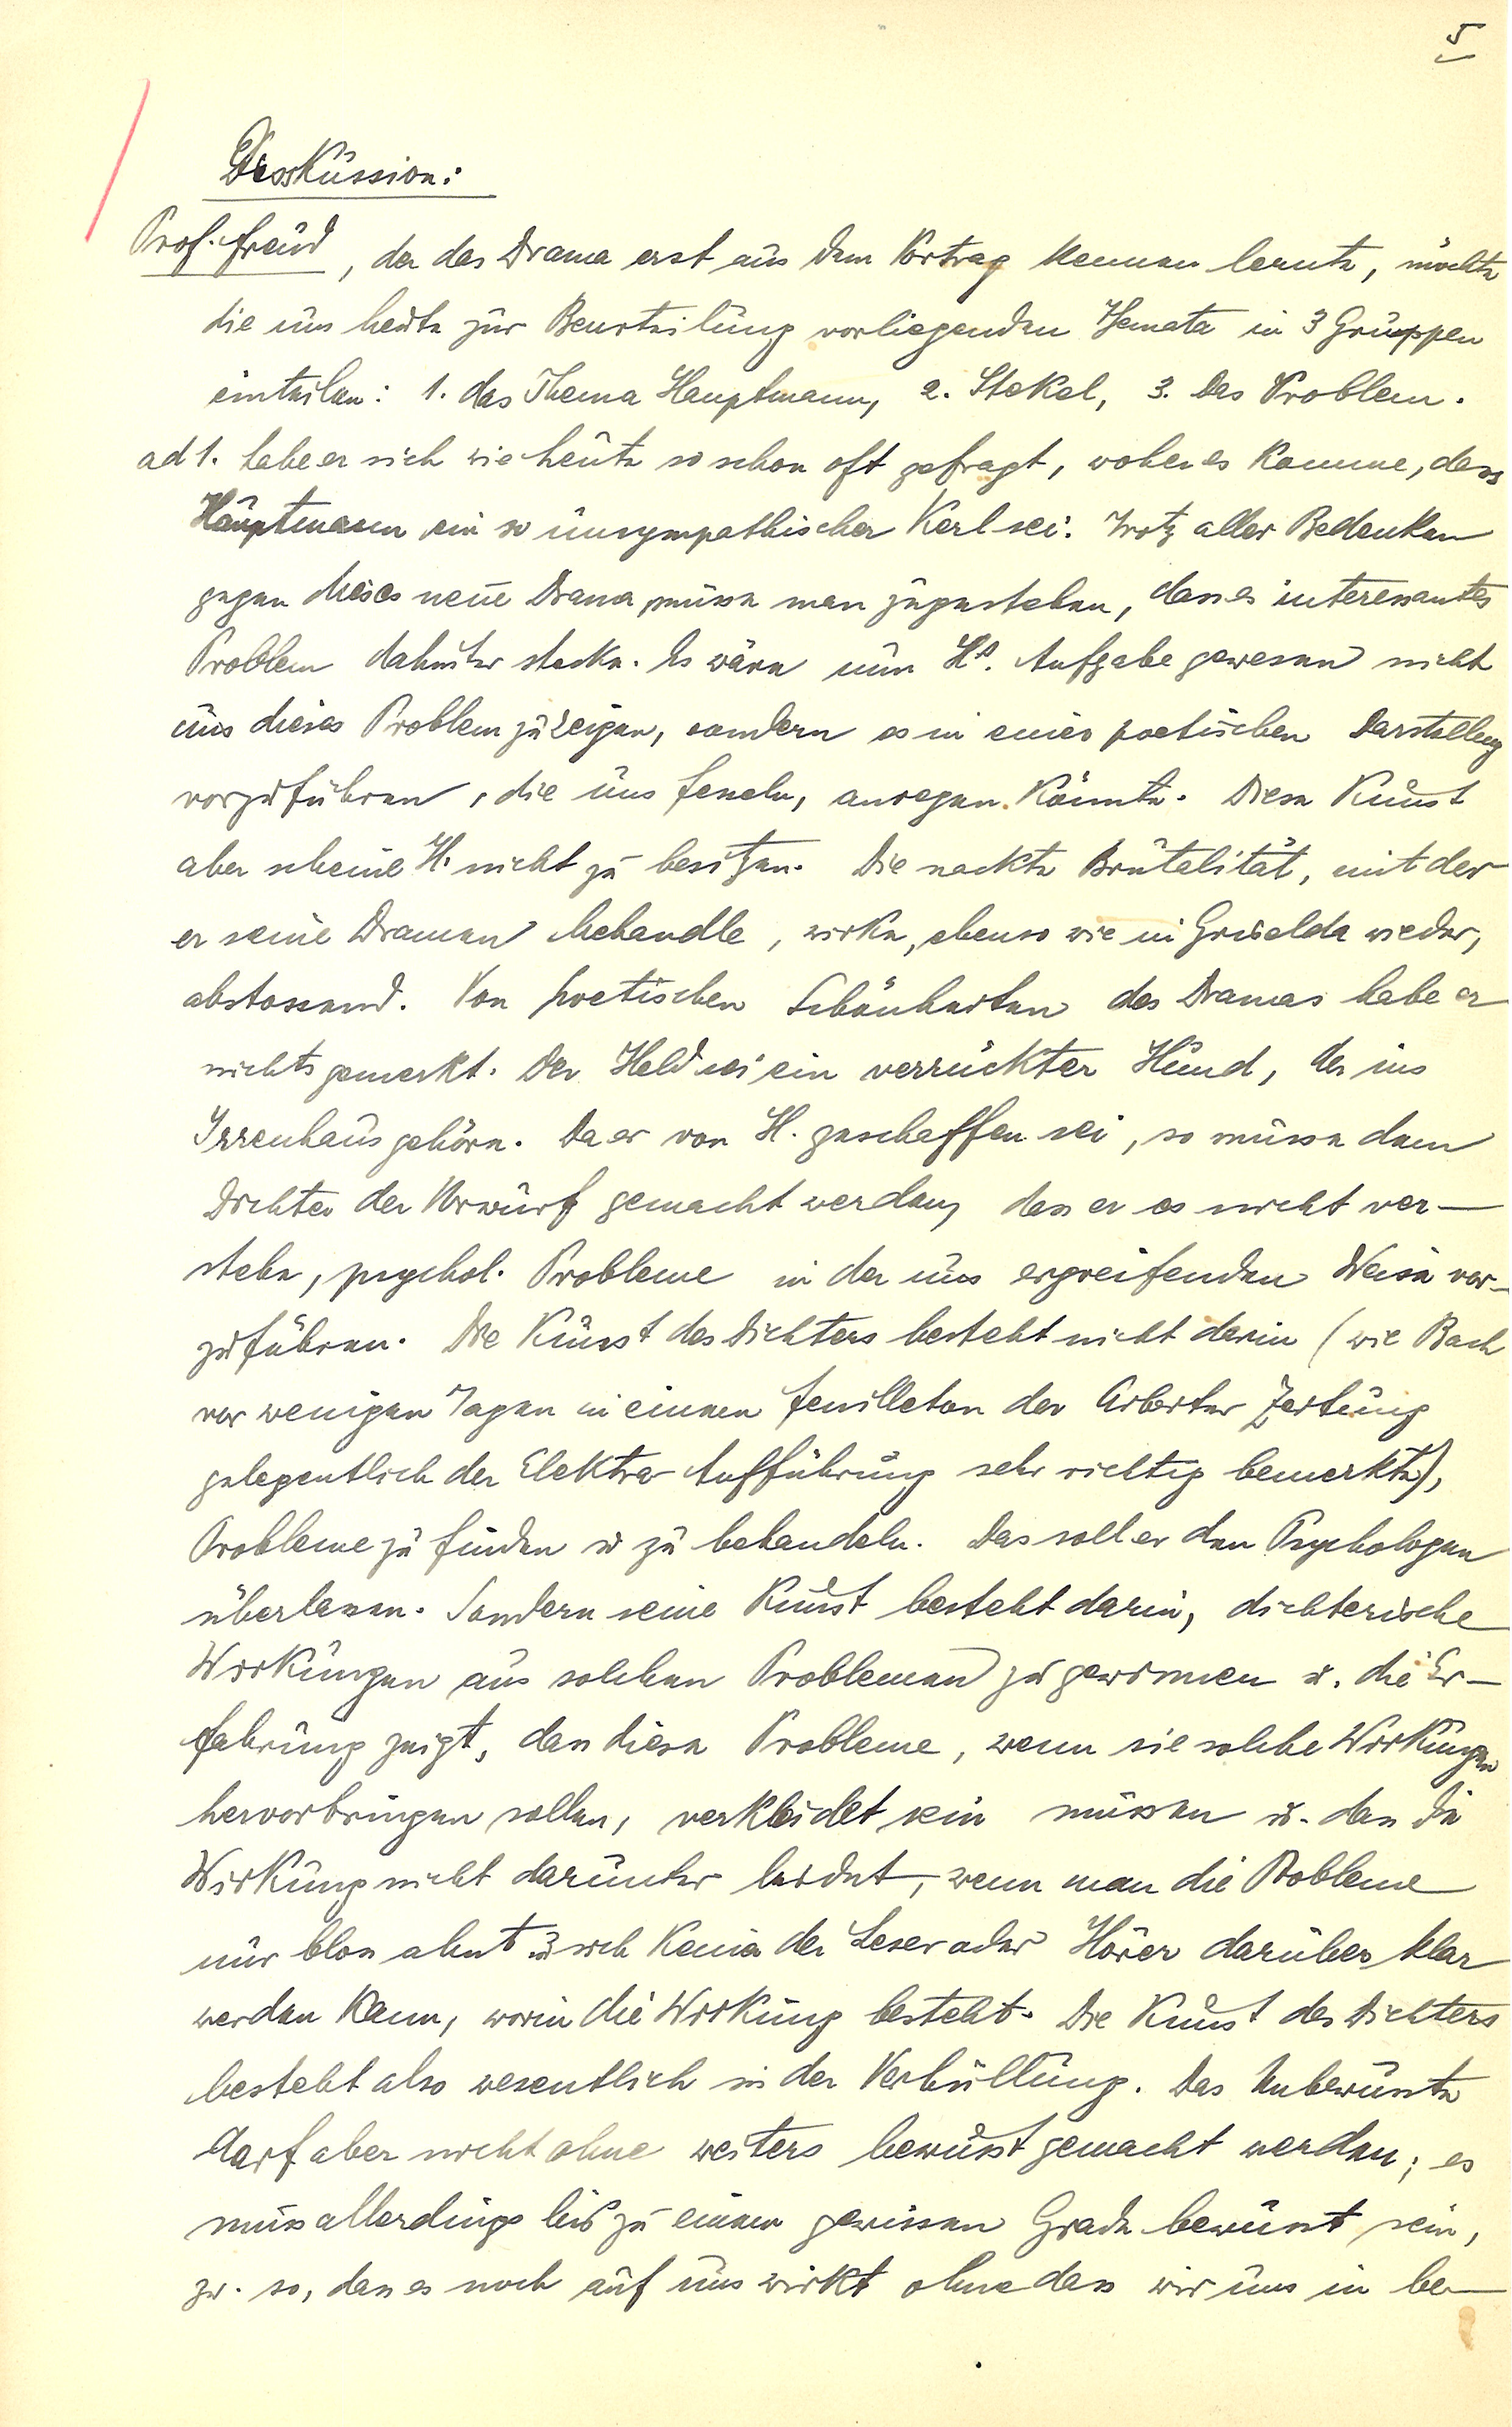 5
Diskussion:
Prof. Freud, der das Drama erst aus dem Vortrag kennen lernte, möchte
die uns heute zur Beurteilung vorliegenden Themata in 3 Gruppen
einteilen: 1. das Thema Hauptmann, 2. Stekel, 3. das Problem.
ad 1. habe er sich wie heute so schon oft gefragt, woher es komme, dass
Hauptmann ein so unsympathischer Kerl sei. Trotz aller Bedenken
gegen dieses neue Drama müsse man zugestehen, dass es interessantes
Problem dahinter stecke. Es wäre nun Hs. Aufgabe gewesen nicht
uns dieses Problem zu zeigen, sondern es in einer poetischen Darstellung
vorzuführen, die uns fesseln, anregen könnte. Diese Kunst
aber scheine H. nicht zu besitzen. Die nackte Brutalität, mit der
er seine Dramen behandle, wirke, ebenso wie in Griselda wieder,
abstossend. Von poetischen Schönheiten des Dramas habe er
nichts gemerkt. Der Held sei ein verrückter Hund, der ins
Irrenhaus gehöre. Da er von H. geschaffen sei, so müsse dem
Dichter der Vorwurf gemacht werden, dass er es nicht ver-
stehe, psychol. Probleme in der uns ergreifenden Weise vor-
zuführen. Die Kunst des Dichters besteht nicht darin (wie Bach
vor wenigen Tagen in einem Feuilleton der Arbeiter Zeitung
gelegentlich der Elektra-Aufführung sehr richtig bemerkte),
Probleme zu finden u zu behandeln. Das soll er den Psychologen
überlassen. Sondern seine Kunst besteht darin, dichterische
Wirkungen aus solchen Problemen zu gewinnen u. die Er-
fahrung zeigt, dass diese Probleme, wenn sie solche Wirkungen
hervorbringen sollen, verkleidet sein müssen u. dass die
Wirkung nicht darunter leidet, wenn man die Probleme
nur bloss ahnt u sich keiner der Leser oder Hörer darüber klar
werden kann, worin die Wirkung besteht. Die Kunst des Dichters
besteht also wesentlich in der Verhüllung. Das Unbewusste
darf aber nicht ohne weiters bewusst gemacht werden; es
muss allerdings bis zu einem gewissen Grade bewusst sein,
zw. so, dass es noch auf uns wirkt ohne dass wir uns in be-